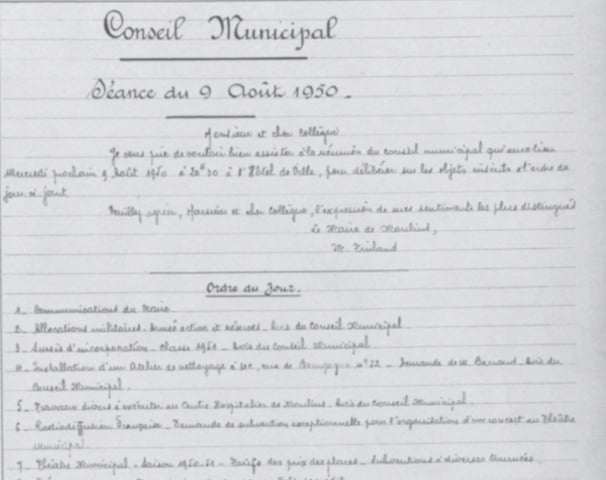 Conseil Municipal
Séance du 9 Août 1950.
Monsieur et cher Collègue
Je vous prie de vouloir bien assister à la réunion du conseil municipal qui aura lieu
Mercredi prochain 9 Août 1950 à 20h30 à l'Hôtel de Ville, pour délibérer sur les objets inscrits à l'ordre du
jour ci-joint
Veuillez agréer, Monsieur et cher Collègue, l'expression de mes sentiments les plus distingués
Le Maire de Moulins,
Ordre du Jour.
1_ Communications du Maire.
2_ Allocations militaires. Armée active et réserves. Avis du Conseil Municipal.
3_ Sursis d'incorporation. Classe 1951_ Avis du Conseil Municipal.
4_ Installation d'un Atelier de nettoyage à sec, rue de Bourgogne n° 22_ Demande de M. Avis du
Conseil Municipal.
5_ Travaux divers à exécuter au Centre Hospitalier de Moulins. Avis du Conseil Municipal.
6_ Radiodiffusion Française_ Demande de subvention exceptionnelle pour l'organisation d'un concert au Théâtre
Municipal
7_ Théâtre Municipal. Saison 1950-51_ Tarifs des prix des places_ Subventions à diverses tournées.